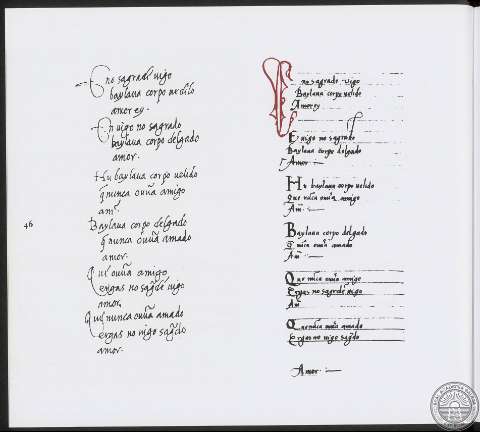 E no sagrado uigo
baylaua corpo uelido
amor ey.
En uigo no sagrado
baylaua corpo delgado
amor.
Hu baylaua corpo uelido
q̃ nunca ouũa amigo
am̃
Baylaua corpo delgado
q̃ nunca ouũa amado
amor.
46
Que ouũa amigo
ergas no sag̃do uigo
amor,
Que nunca ouũa amado
ergas no uigo sag̃do
amor.
no sagrado uigo
Baylaua corpo uelido
Amor ey
E uigo no sagrado
Baylaua corpo delgado
Amor
Hu baylaua corpo uelido
Que nũca ouũa amigo
Am̃
Baylaua corpo delgado
q̃ nũca ouũa amado
Am̃
Que nũca ouũa amigo
Ergas no sagrado uigo
Am̃
Que nũca ouũa amado
Ergas no uigo sag̃do
Amor